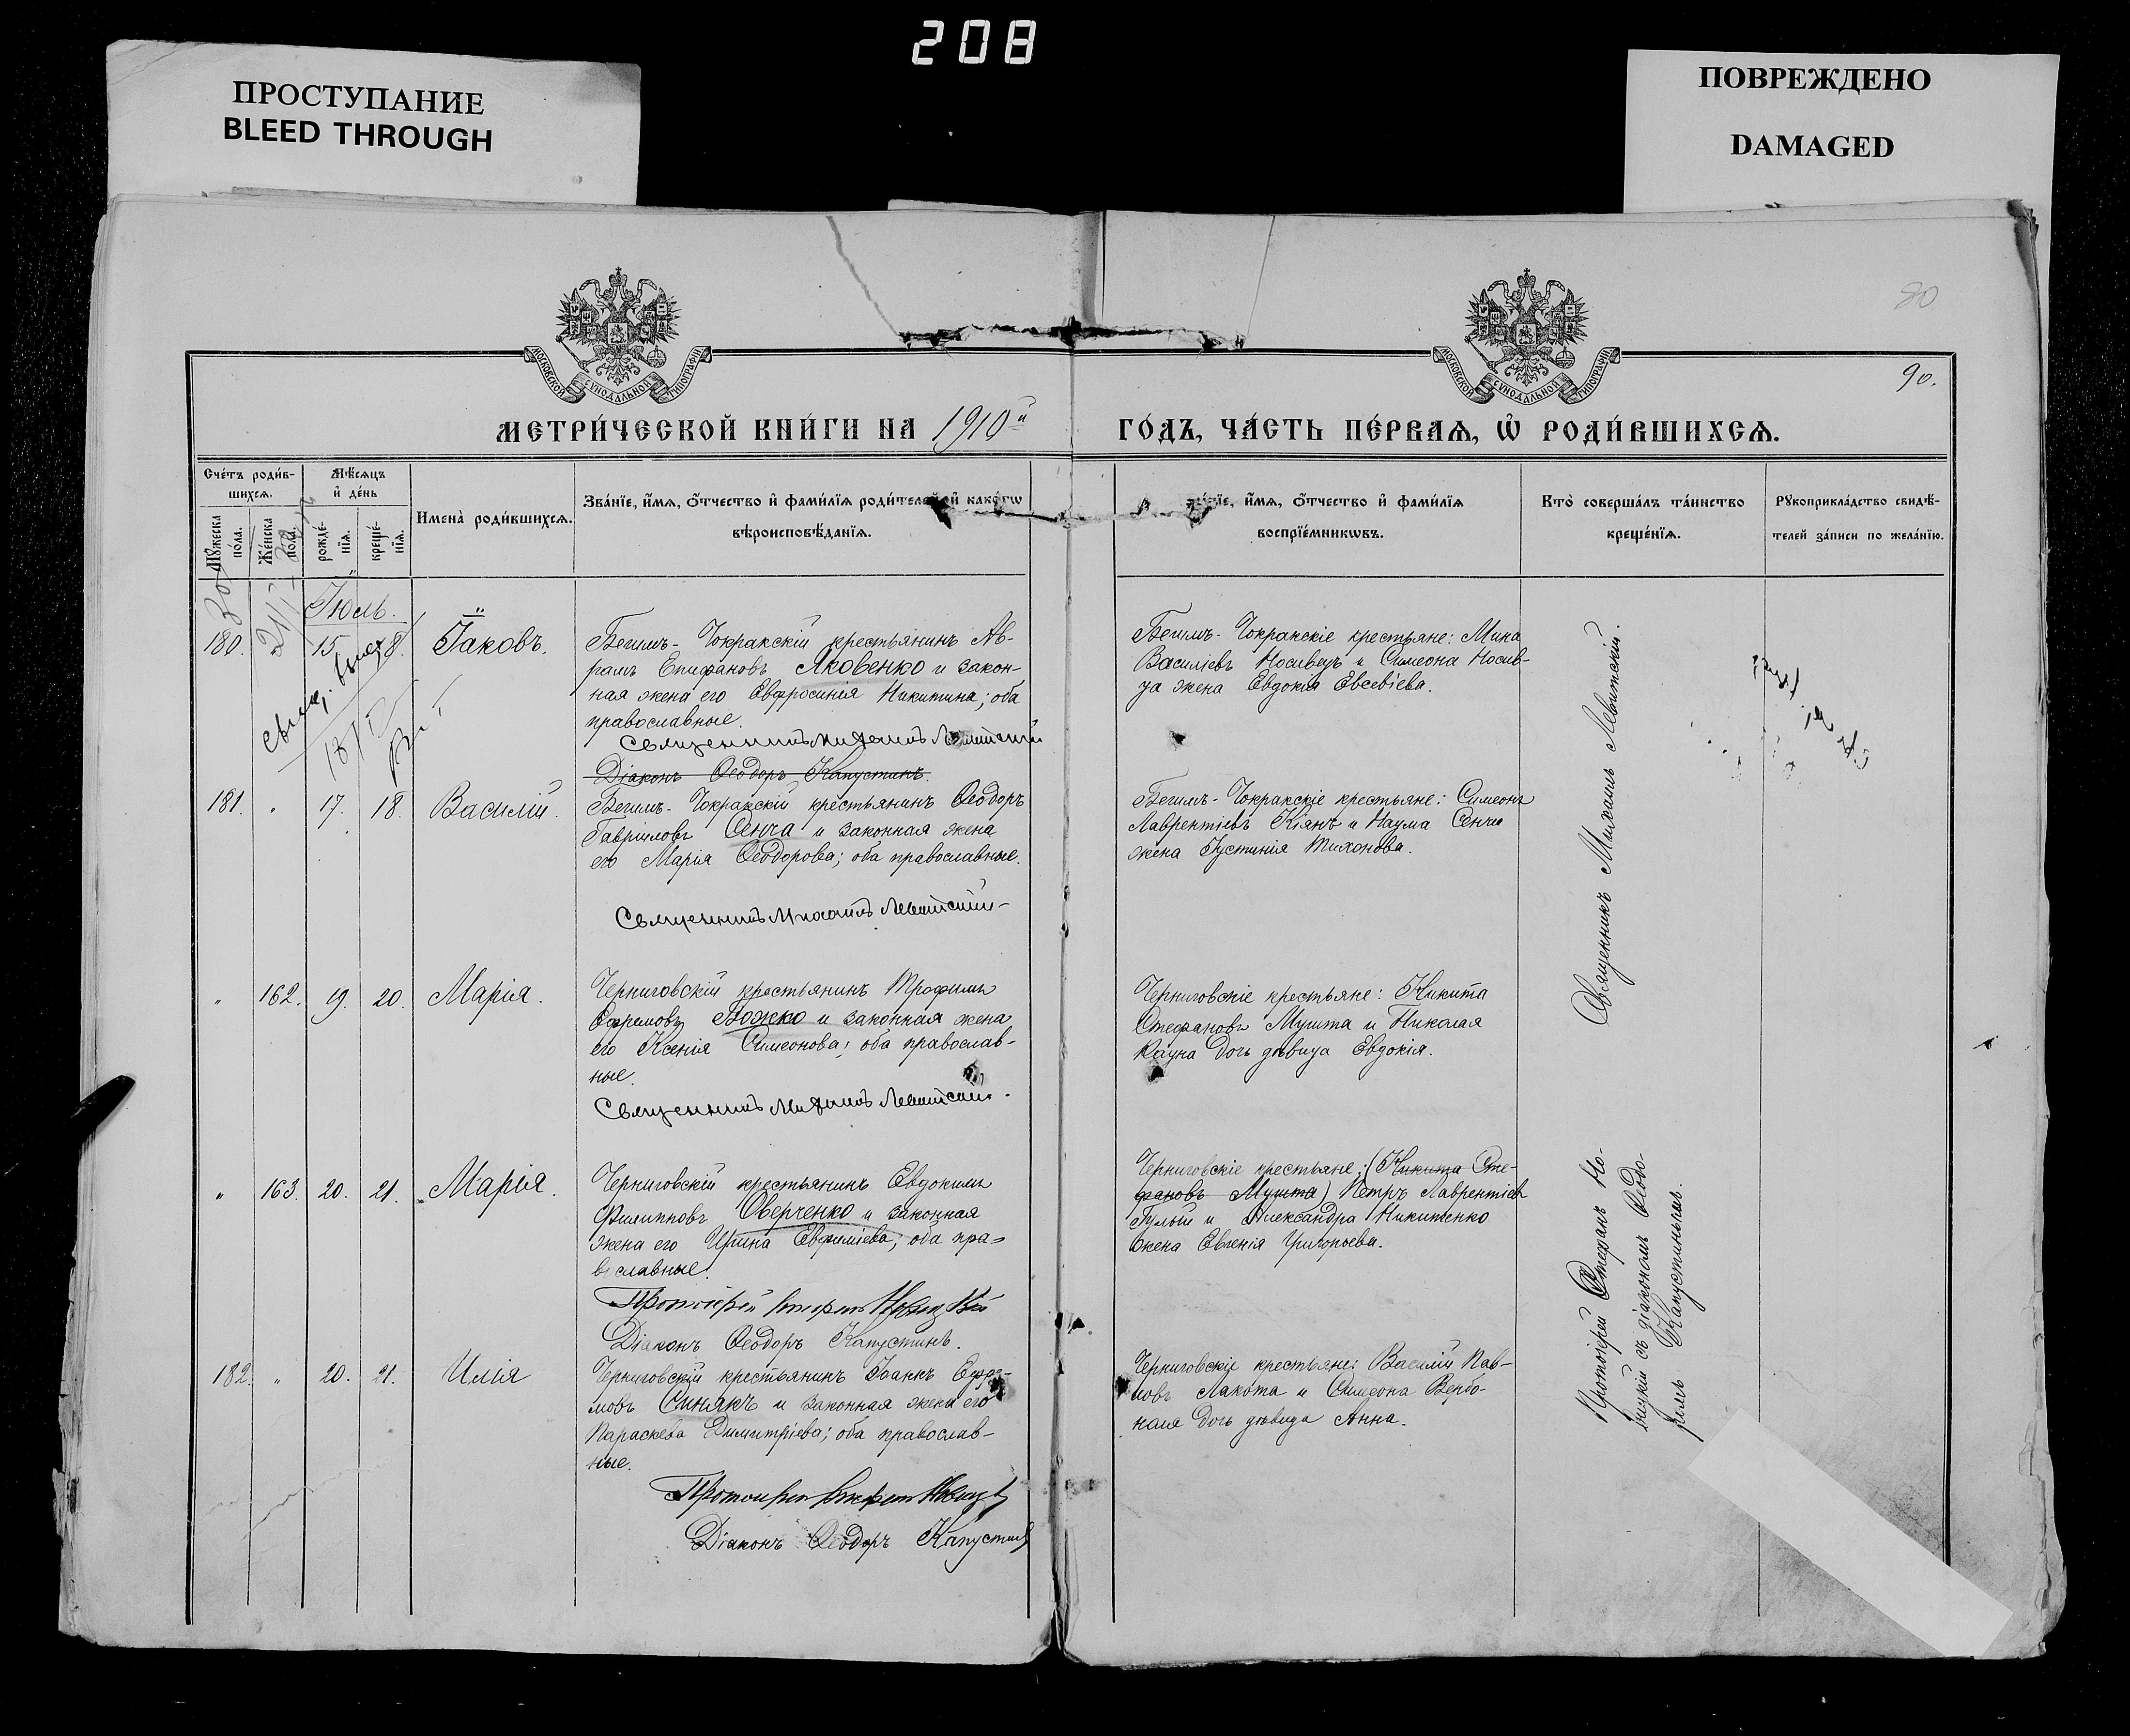 208
ПРОСТУПАНИЕ
BLEED THROUGH
ПОВРЕЖДЕНО
DAMAGED
МОСКОВСКОЙ СѴНОДАЛЬНОЙ ТИПОГРАФІИ
МОСКОВСКОЙ СѴНОДАЛЬНОЙ ТИПОГРАФІИ
80
90.
МЕТРИ́ЧЕСКОЙ КНИ́ГИ НА 1910й
ГО́ДЪ, ЧА́СТЬ ПЕ́РВАѦ, Ѡ҆ РОДИ́ВШИХСѦ.
Сче́тъ роди́в-
шихсѧ.
Мѣ́сѧцъ
и҆ де́нь
Мꙋ́жеска
по́ла.
Же́нска
по́ла.
рожде́-
нїѧ.
креще́-
нїѧ.
Имена̀ роди́вшихсѧ.
Зва́нїе, и҆́мѧ, ѻ҆́тчество и҆ фами́лїѧ роди́телей и҆ како́гѡ
вѣроисповѣ́данїѧ.
и҆́мѧ, ѻ҆́тчество и҆ фами́лїѧ
воспрїе́мникѡвъ.
Кто̀ соверша́лъ та́инство
креще́нїѧ.
Рꙋкоприкла́дство свидѣ́-
телей за́писи по жела́нїю.
Іюль.
180. 15. 18. Іаковъ.
Бегимъ-Чокракскій крестьянинъ Ав-
рамъ Епифановъ Яковенко и закон-
ная жена его Евфросинія Никитина; оба
православные.
Священникъ Михаилъ Левитскій
Діаконъ Ѳеодоръ Капустинъ.
Бегимъ-Чокракскіе крестьяне: Мина
Василіевъ Носивецъ и Симеона Носив-
ца жена Евдокія Евсевіева.
181. " 17. 18. Василій.
Бегимъ-Чокракскій крестьянинъ Ѳеодоръ
Гавріиловъ Сенча и законная жена
его Марія Ѳеодорова; оба православные.
Священникъ Михаилъ Левитскій
Бегимъ-Чокракскіе крестьяне: Симеонъ
Лаврентіевъ Кіянъ и Наума Сенчи
жена Іустинія Тихонова.
Священникъ Михаилъ Левитскій.
" 162. 19. 20. Марія.
Черниговскій крестьянинъ Трофимъ
Ефремовъ Божко и законная жена
его Ксенія Симеонова; оба православ-
ные.
Священникъ Михаилъ Левитскій.
Черниговскіе крестьяне: Никита
Стефановъ Мушта и Николая
Кауна дочь дѣвица Евдокія.
" 163. 20. 21. Марія.
Черниговскій крестьянинъ Евдокимъ
Филипповъ Оверченко и законная
жена его Ирина Евфиміева; оба пра-
вославные.
Протоіерей Стефанъ Новицкій
Діаконъ Ѳеодоръ Капустинъ.
Черниговскіе крестьяне: (Никита Сте-
фановъ Мушта) Петръ Лаврентіевъ
Гулый и Александра Никитенко
жена Евгенія Григорьева.
182. " 20. 21. Илія
Черниговскій крестьянинъ Іоаннъ Ефре-
мовъ Синякъ и законная жена его
Параскева Димитріева; оба православ-
ные.
Протоіерей Стефанъ Новицкій
Діаконъ Ѳеодоръ Капустинъ
Черниговскіе крестьяне: Василій Пав-
ловъ Лакота и Симеона Вербо-
ная дочь дѣвица Анна.
Протоіерей Стефанъ Но-
вицкій съ діакономъ Ѳеодо-
ромъ Капустинымъ.